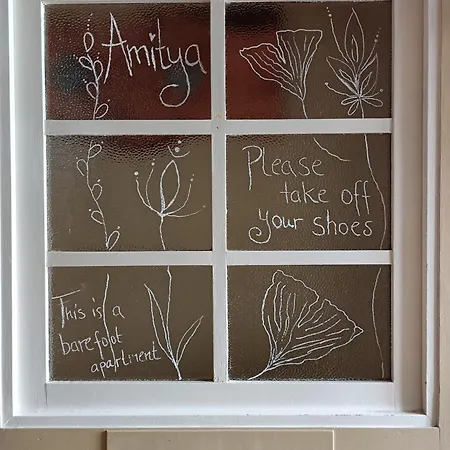 Amitya
Please
take off
your shoes
This is a
barefoot
apartment